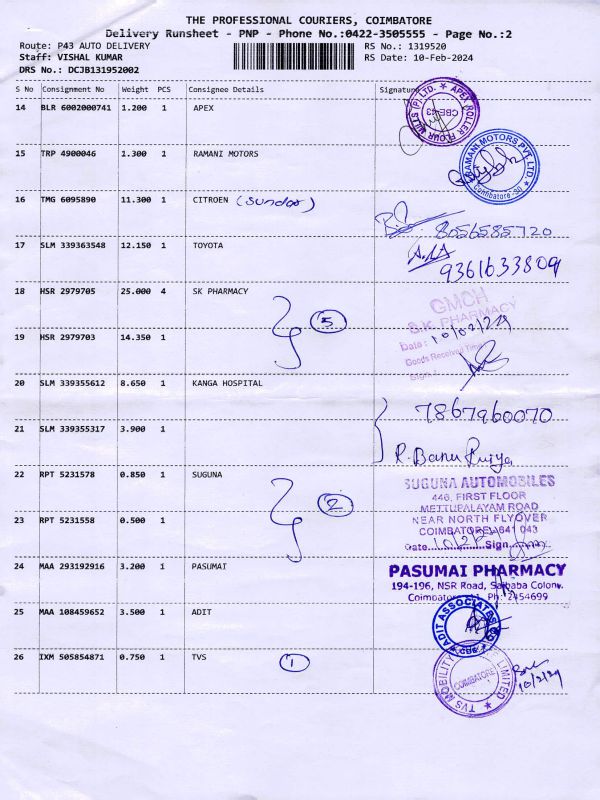 THE PROFESSIONAL COURIERS, COIMBATORE
Delivery Runsheet - PNP - Phone No.:0422-3505555 - Page No.:2
Route: P43 AUTO DELIVERY RS No.: 1319520
Staff: VISHAL KUMAR RS Date: 10-Feb-2024
DRS No.: DCJB131952002
S No Consignment No Weight PCS Consignee Details Signature
14 BLR 6002000741 1.200 1 APEX
APEX ROLLER FLOUR MILLS (P) LTD. CBE-43
15 TRP 4900046 1.300 1 RAMANI MOTORS
RAMANI MOTORS PVT. LTD. Coimbatore
16 TMG 6095890 11.300 1 CITROEN (Sundar)
8056585720
17 SLM 339363548 12.150 1 TOYOTA
9361633809
18 HSR 2979705 25.000 4 SK PHARMACY
5
GMCH
S.K. PHARMACY
Date: 10/02/24
Goods Received Time
Sign:
19 HSR 2979703 14.350 1
20 SLM 339355612 8.650 1 KANGA HOSPITAL
7867960070
21 SLM 339355317 3.900 1
R. Banu Priya
22 RPT 5231578 0.850 1 SUGUNA
2
SUGUNA AUTOMOBILES
446, FIRST FLOOR
METTUPALAYAM ROAD
NEAR NORTH FLYOVER
COIMBATORE-641 043
Date Sign
23 RPT 5231558 0.500 1
24 MAA 293192916 3.200 1 PASUMAI
PASUMAI PHARMACY
194-196, NSR Road, Saibaba Colony,
Coimbatore-11. Ph: 2454699
25 MAA 108459652 3.500 1 ADIT
ADIT ASSOCIATES CBE
26 IXM 505854871 0.750 1 TVS 1
TVS MOBILITY LIMITED COIMBATORE
10/2/24